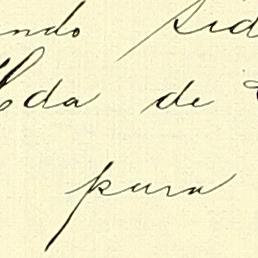 ndo sid
da de
pura